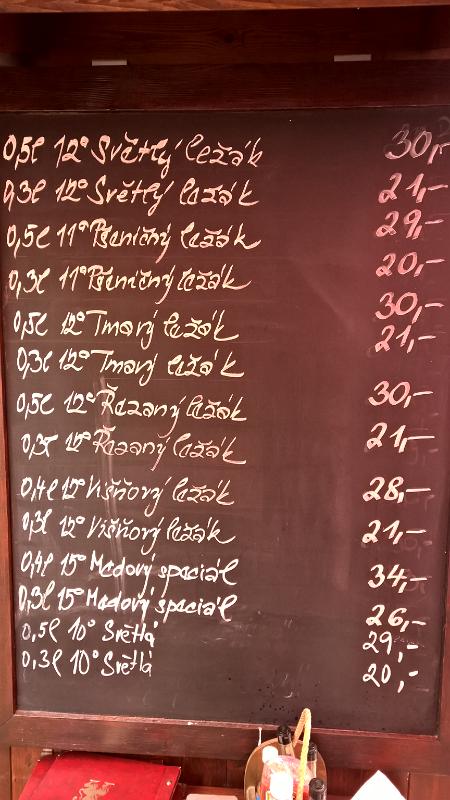 0,5l 12° Světlý ležák 30,-
0,3l 12° Světlý ležák 21,-
0,5l 11° Pšeničný ležák 29,-
0,3l 11° Pšeničný ležák 20,-
0,5l 12° Tmavý ležák 30,-
0,3l 12° Tmavý ležák 21,-
0,5l 12° Řezaný ležák 30,-
0,3l 12° Řezaný ležák 21,-
0,4l 12° Višňový ležák 28,-
0,3l 12° Višňový ležák 21,-
0,4l 15° Medový speciál 34,-
0,3l 15° Medový speciál 26,-
0,5l 10° Světlá 29,-
0,3l 10° Světlá 20,-